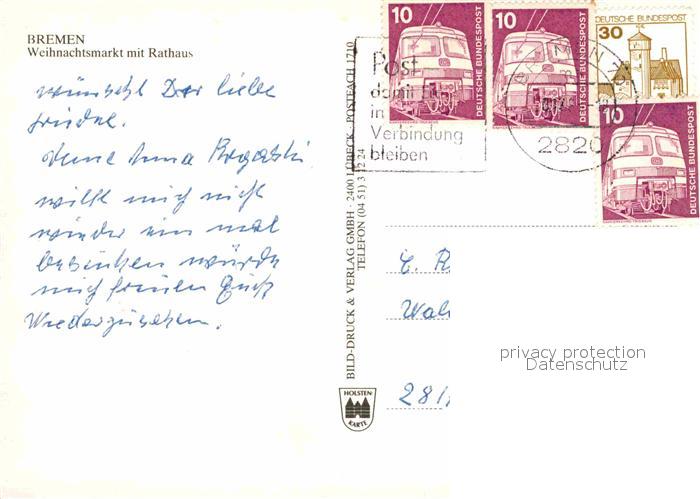 BREMEN
Weihnachtsmarkt mit Rathaus
wünscht Dir liebe
Friedel.
Deine Anna
willst mich nicht
wieder ein mal
besuchen würde
mich freuen Euch
Wiederzusehen.
BILD-DRUCK & VERLAG GMBH · 2400 LÜBECK · POSTFACH 1710
TELEFON (04 51) 3 12 24
HOLSTEN
KARTE
10
DEUTSCHE BUNDESPOST
10
DEUTSCHE BUNDESPOST
DEUTSCHE BUNDESPOST
30
10
DEUTSCHE BUNDESPOST
Post
damit
in
Verbindung
bleiben
2820
privacy protection
Datenschutz